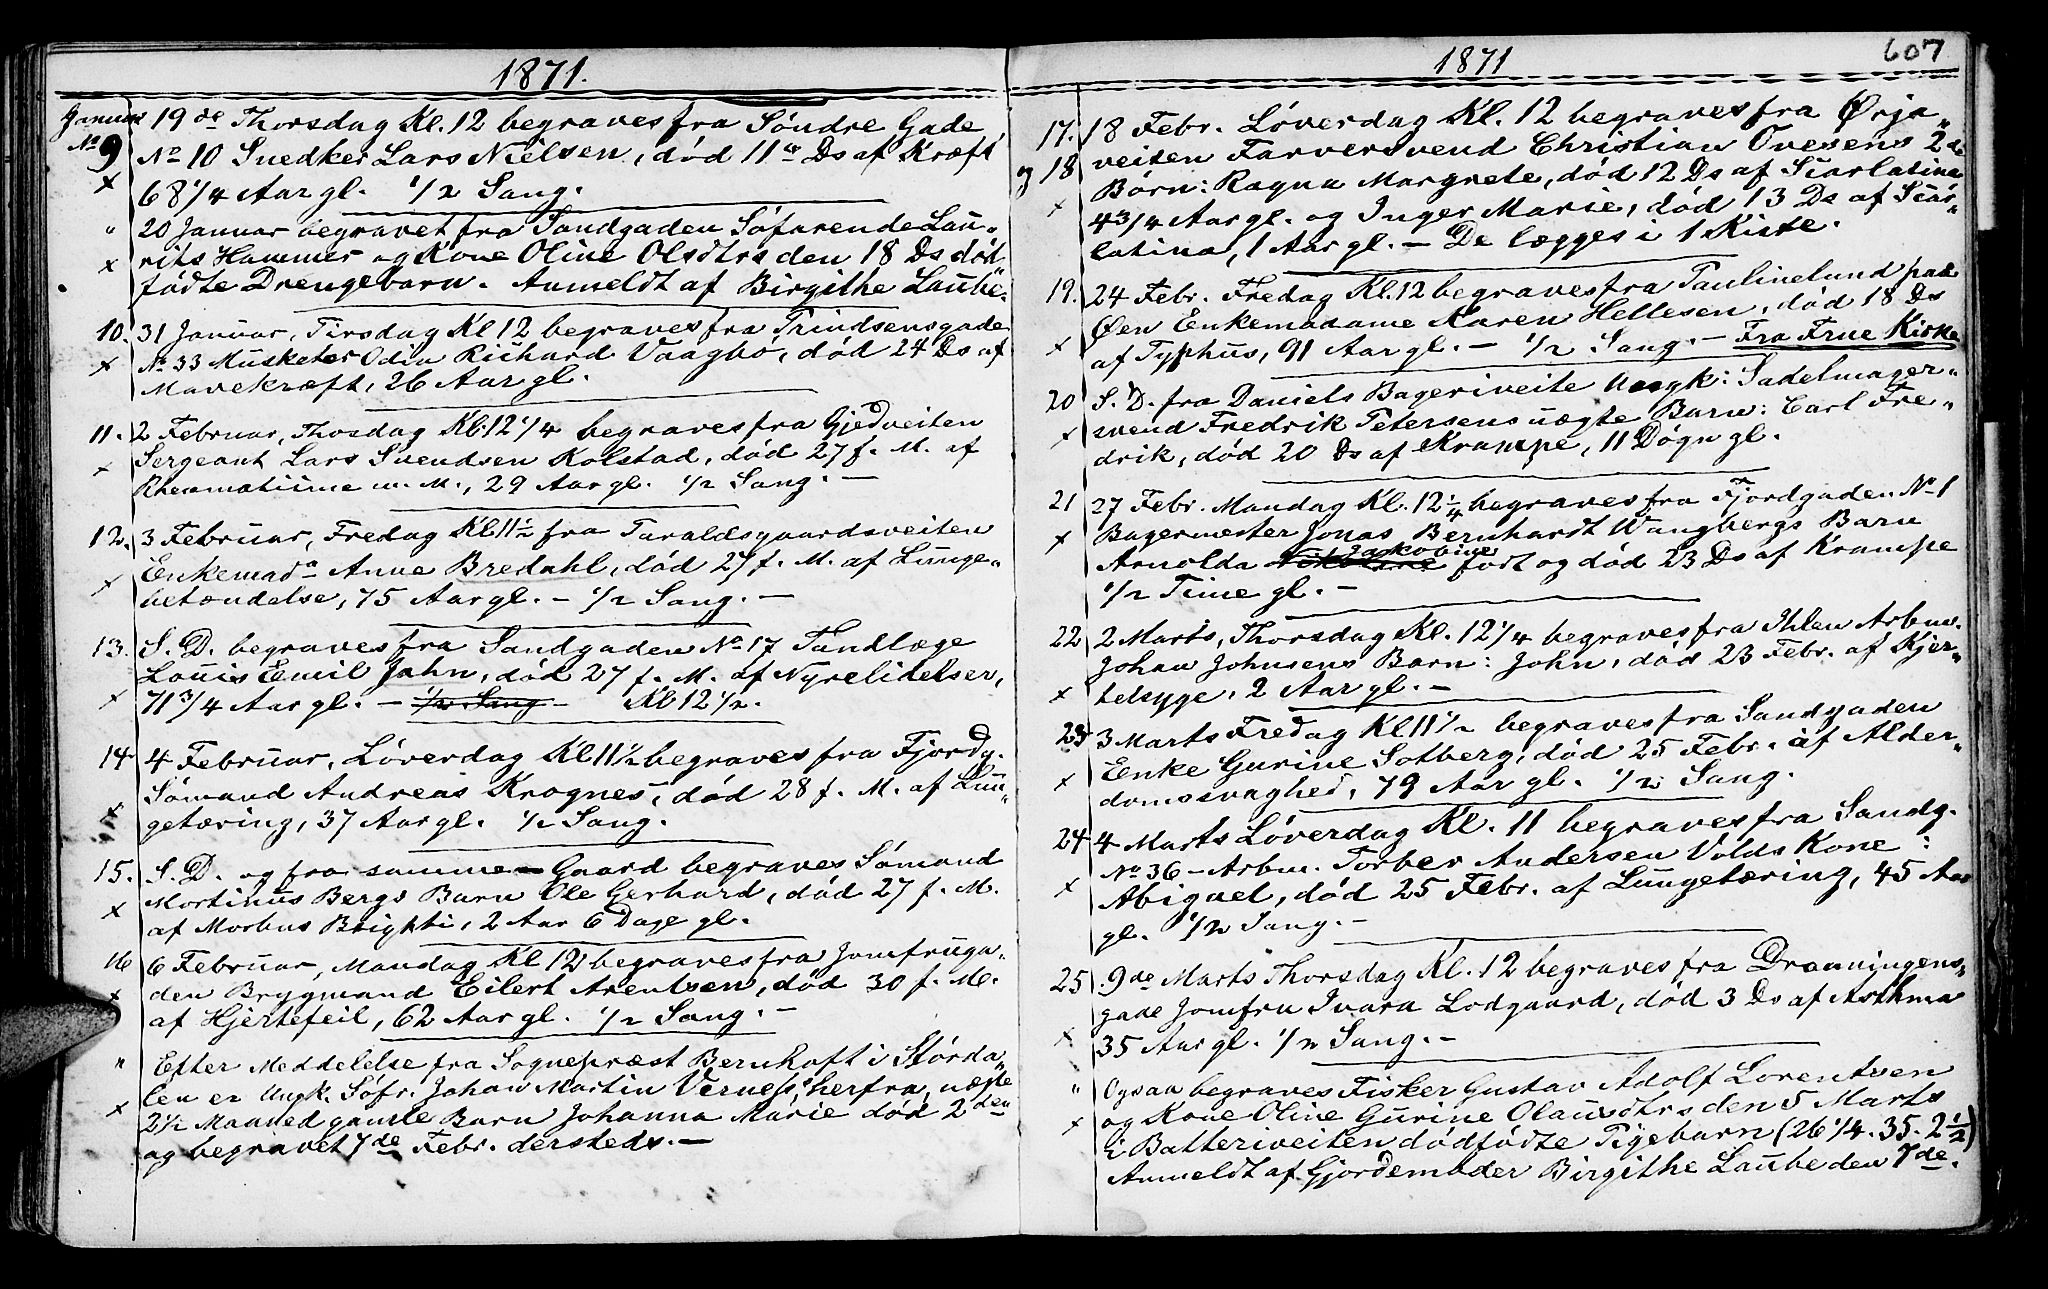 1871.
Januar 19de Thorsdag Kl. 12 begraves fra Söndre Gade
No 9 No 10 Snedker Lars Nielsen, död 11te Ds af Kræft
x 68 1/4 Aar gl. 1/2 Sang.
" 20 Januar begravet fra Sandgaden Söfarende Lau„
x rits Hammer og Kone Oline Olsdtrs den 18 Ds död
födte Drengebarn. Anmeldt af Birgithe Laube.
10. 31 Januar, Tirsdag Kl 12 begraves fra Prindsensgade
x No 33 Musketer Odin Richard Vaagbö, död 24 Ds af
Mavekræft, 26 Aar gl.
11. 2 Februar, Thosdag Kl. 12 1/4 begraves fra Gjedveiten
x Sergeant Lars Svendsen Kolstad, död 27 f. M. af
Rheumatisme m. M., 29 Aar gl. 1/2 Sang. —
12. 3 Februar, Fredag Kl 11 1/2 fra Taraldsgaardsveiten
x Enkemada Anne Bredahl, död 27 f. M. af Lunge„
betændelse, 75 Aar gl. — 1/2 Sang. —
13. S. D. begraves fra Sandgaden No 17 Tandlæge
Louis Eemil Jahn, död 27 f. M. af Nyrelidelser,
x 71 3/4 Aar gl. — 1/2 Sang — Kl 12 1/2.
14 4 Februar, Löverdag Kl 11 1/2 begraves fra Fjordg.
x Sömand Andreas Krognes, död 28 f. M. af Lun„
getæring, 37 Aar gl. 1/2 Sang.
15. S. D. og fra samme Gaard begraves Sömand
x Mortinus Bergs Barn Ole Gerhard, död 27 f. M.
af Morbus Brigkti, 2 Aar 6 Dage gl.
16 6 Februar, Mandag Kl 12 begraves fra Jomfruga„
x den Brygmand Eilert Arentsen, död 30 f. M.
af Hjertefeil, 62 Aar gl. 1/2 Sang. —
" Efter Meddelelse fra Sognepræst Bernhoft i Störda„
len er Ungk. Söfr. Johan Martin Verness, herfra, uægte
x 2 1/2 Maaned gamle Barn Johanna Marie död 2den
og begravet 7de Febr. dersteds. —
1871
607
17. 18 Febr. Löverdag Kl. 12 begraves fra Ørja„
g 18 veiten Farversvend Christian Ovesens 2de
x Börn: Ragna Margrete, död 12 Ds af Scarlatina
4 3/4 Aar gl. og Inger Marie, död 13 Ds af Scar„
latina, 1 Aar gl. — De lægges i 1 Kiste.
19. 24 Febr. Fredag Kl. 12 begraves fra Paulinelund paa
Øen Enkemadame Karen Hellesen, död 18 Ds
x af Typhus, 91 Aar gl. — 1/2 Sang. — Fra Frue Kirke
20 S. D. fra Daniels Bageriveite Ungk: Sadelmager„
x svend Fredrik Petersens uægte Barn: Carl Fre„
drik, död 20 Ds af Krampe, 11 Dögn gl.
21 27 Febr. Mandag Kl. 12 1/4 begraves fra Fjordgaden No 1
x Bagermester Jonas Bernhardt Wangbergs Barn
Arnolda Jackobine födt og död 23 Ds af Krampe
1/2 Time gl. —
22 2 Marts, Thorsdag Kl. 12 1/4 begraves fra Ihlen Arbm.
Johan Johnsens Barn: John, död 23 Febr. af Kjer„
x telsyge, 2 Aar gl. —
23 3 Marts Fredag Kl 11 1/2 begraves fra Sandgaden
x Eenke Gurine Solberg, död 25 Febr. af Alder„
domssvaghed, 79 Aar gl. 1/2 Sang.
24 4 Marts Löverdag Kl. 11 begraves fra Sandg.
No 36 — Arbm. Torber Andersen Volds Kone:
x Abigael, död 25 Febr. af Lungetæring, 45 Aar
gl. 1/2 Sang. —
25 9de Marts Thorsdag Kl. 12 begraves fra Dronningens„
gade Jomfru Ivara Lodgaard, död 3 Ds af Asthma
x 35 Aar gl. 1/2 Sang. —
" Ogsaa begraves Fisker Gustav Adolf Lorentsen
x og Kone Oline Gurine Olausdtrs den 5 Marts
i Batteriveiten dödfödte Pigebarn (26 1/4. 35. 2 1/2)
Anmeldt af Gjordemoder Birgithe Laube den 7de.